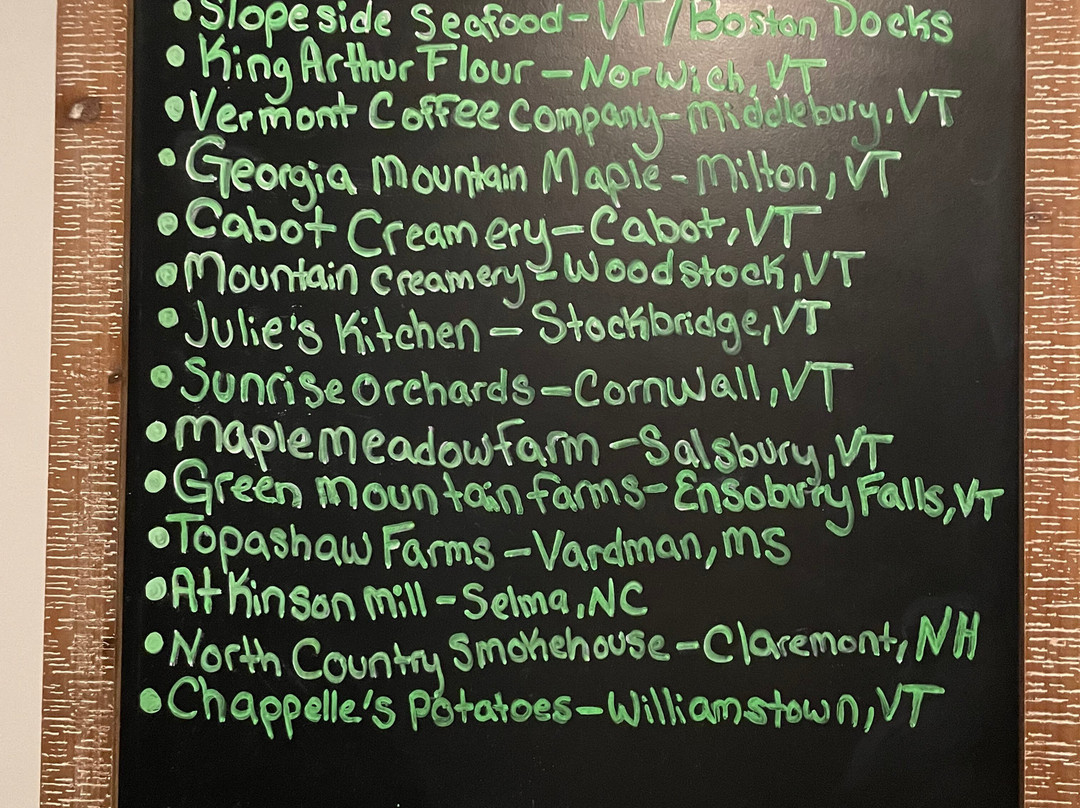 • Slopeside Seafood - VT/Boston Docks
• King Arthur Flour - Norwich, VT
• Vermont Coffee Company - Middlebury, VT
• Georgia Mountain Maple - Milton, VT
• Cabot Creamery - Cabot, VT
• Mountain creamery - Woodstock, VT
• Julie's Kitchen - Stockbridge, VT
• Sunrise orchards - Cornwall, VT
• Maple meadow farm - Salsbury, VT
• Green mountain farms - Ensobury Falls, VT
• Topashaw Farms - Vardman, MS
• Atkinson mill - Selma, NC
• North Country Smokehouse - Claremont, NH
• Chappelle's Potatoes - Williamstown, VT